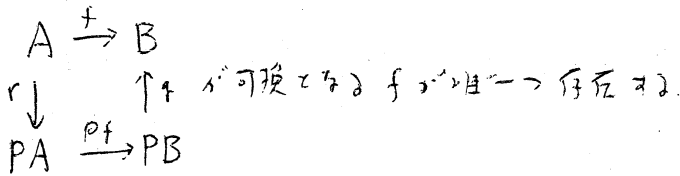 f
A → B
r ↓ ↑ q が可換となる f が唯一つ存在する.
Pf
PA → PB